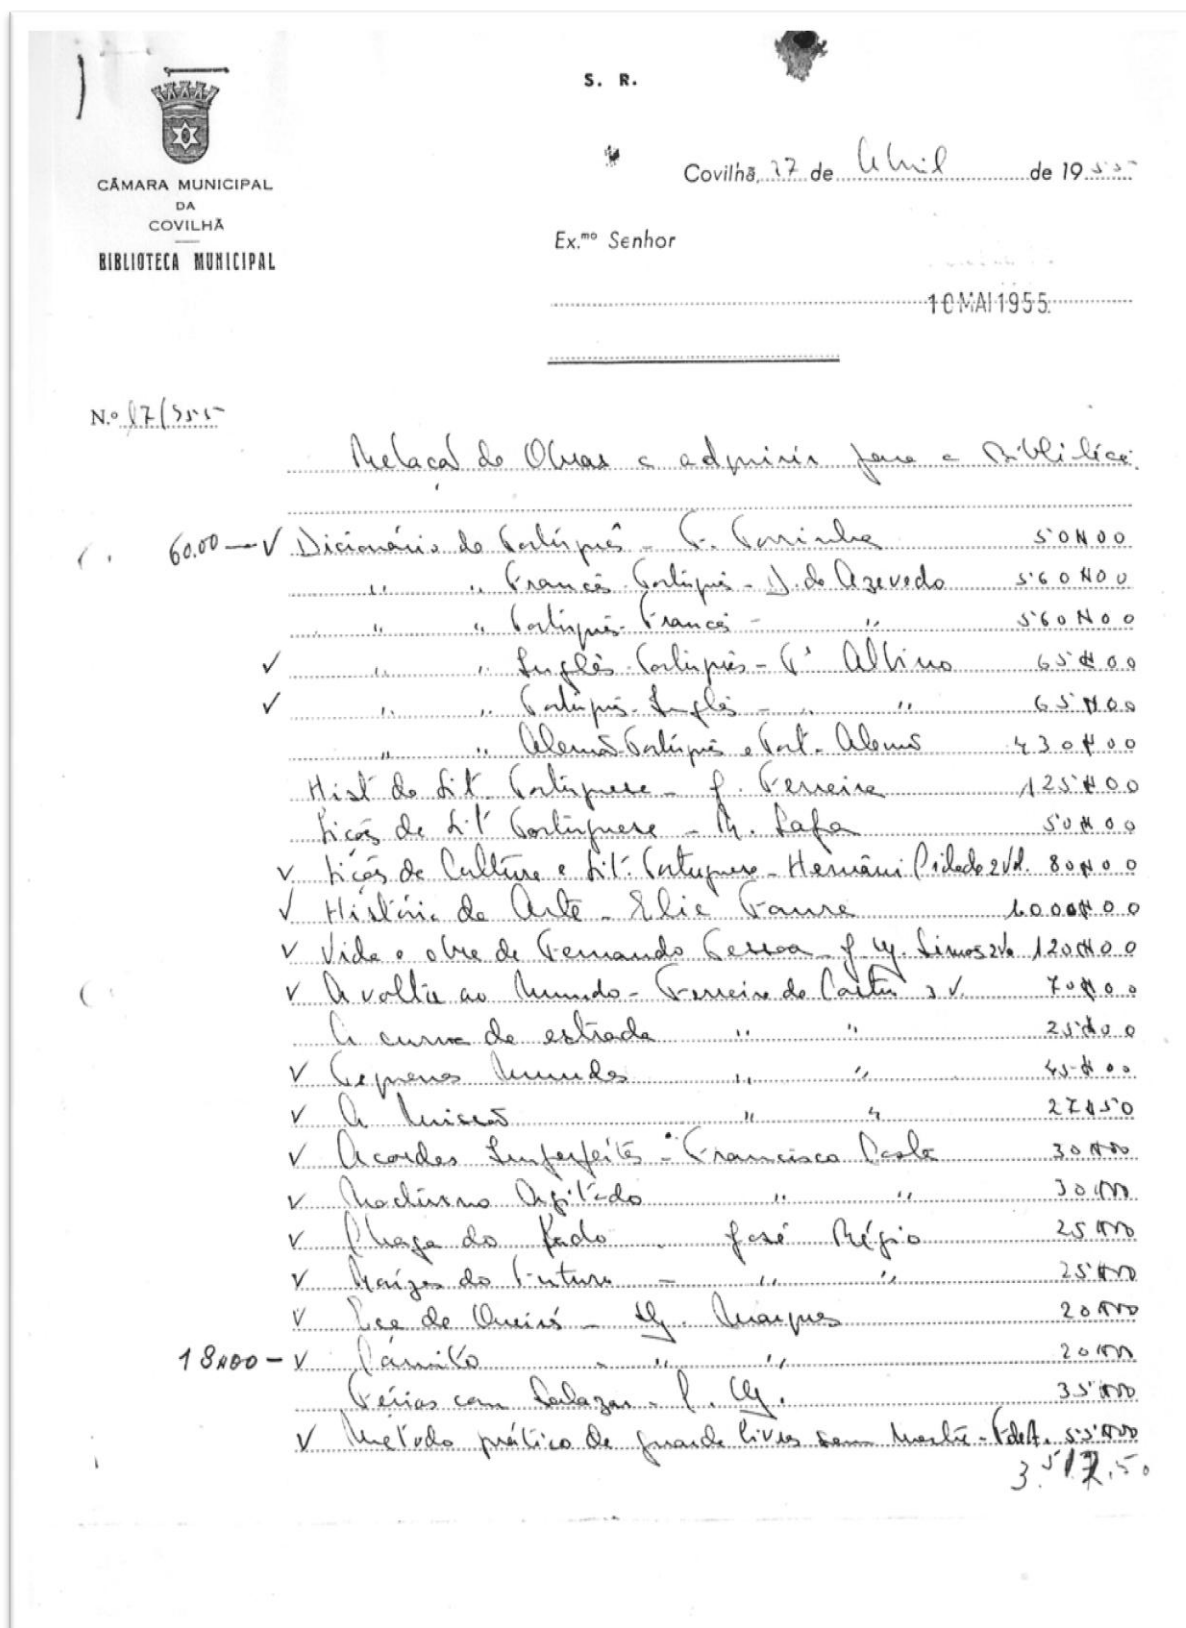 S. R.
CÂMARA MUNICIPAL
DA
COVILHÃ
BIBLIOTECA MUNICIPAL
Covilhã, 27 de Abril de 1955
Ex.mo Senhor
10 MAI 1955
N.o 17/955
Relação de Obras a adquirir para a Biblioteca
60.00 — ✓ Dicionário de Português - F. Torrinha 50$00
" " Francês-Português - D. de Azevedo 560$00
" " Português-Francês - " 560$00
✓ " " Inglês-Português - Albino 65$00
✓ " " Português-Inglês - " " 65$00
" " Alemão-Português e Port.-Alemão 430$00
Hist. da Lit. Portuguesa - J. Ferreira 125$00
Lições de Lit. Portuguesa - R. Lapa 50$00
✓ Lições de Cultura e Lit. Portuguesa - Hernâni Cidade 2 Vol. 80$00
✓ História da Arte - Elie Faure 1.000$00
✓ Vida e obra de Fernando Pessoa - J. G. Simões 2 V. 120$00
✓ A volta ao Mundo - Ferreira de Castro 3 V. 70$00
A curva da estrada " " 25$00
✓ Pequenos Mundos " " 45$00
✓ A Missão " " 27$50
✓ Acordes Imperfeitos - Francisco Costa 30$00
✓ Nocturno Agitado " " 30$00
✓ Chaga do Lado - José Régio 25$00
✓ Raízes do Futuro - " " 25$00
✓ Eça de Queirós - Marques 20$00
18$00 - ✓ Camilo - " " 20$00
Férias com Salazar - C. G. 35$00
✓ Método prático de guarda livros sem Mestre - F. de A. 55$00
3.517.50